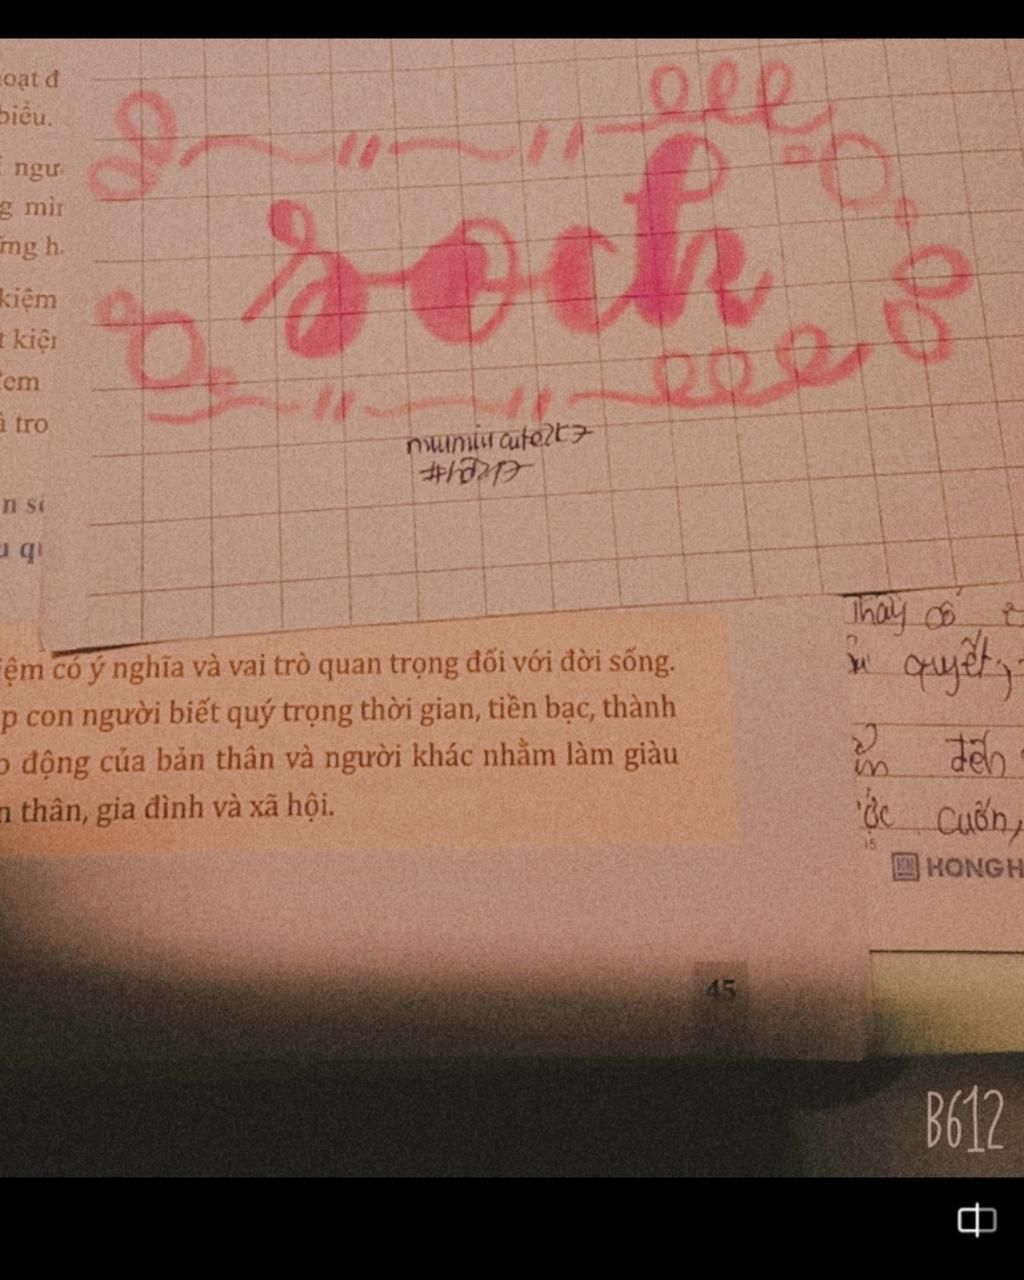 oạt đ
biểu.
ngư
g mìn
ứng h
kiệm
t kiện
tro
soch
n s
u qu
iệm có ý nghĩa và vai trò quan trọng đối với đời sống.
p con người biết quý trọng thời gian, tiền bạc, thành
o động của bản thân và người khác nhằm làm giàu
n thân, gia đình và xã hội.
Thay
quyết,
đến
ước cuốn,
HONG H
45
B612